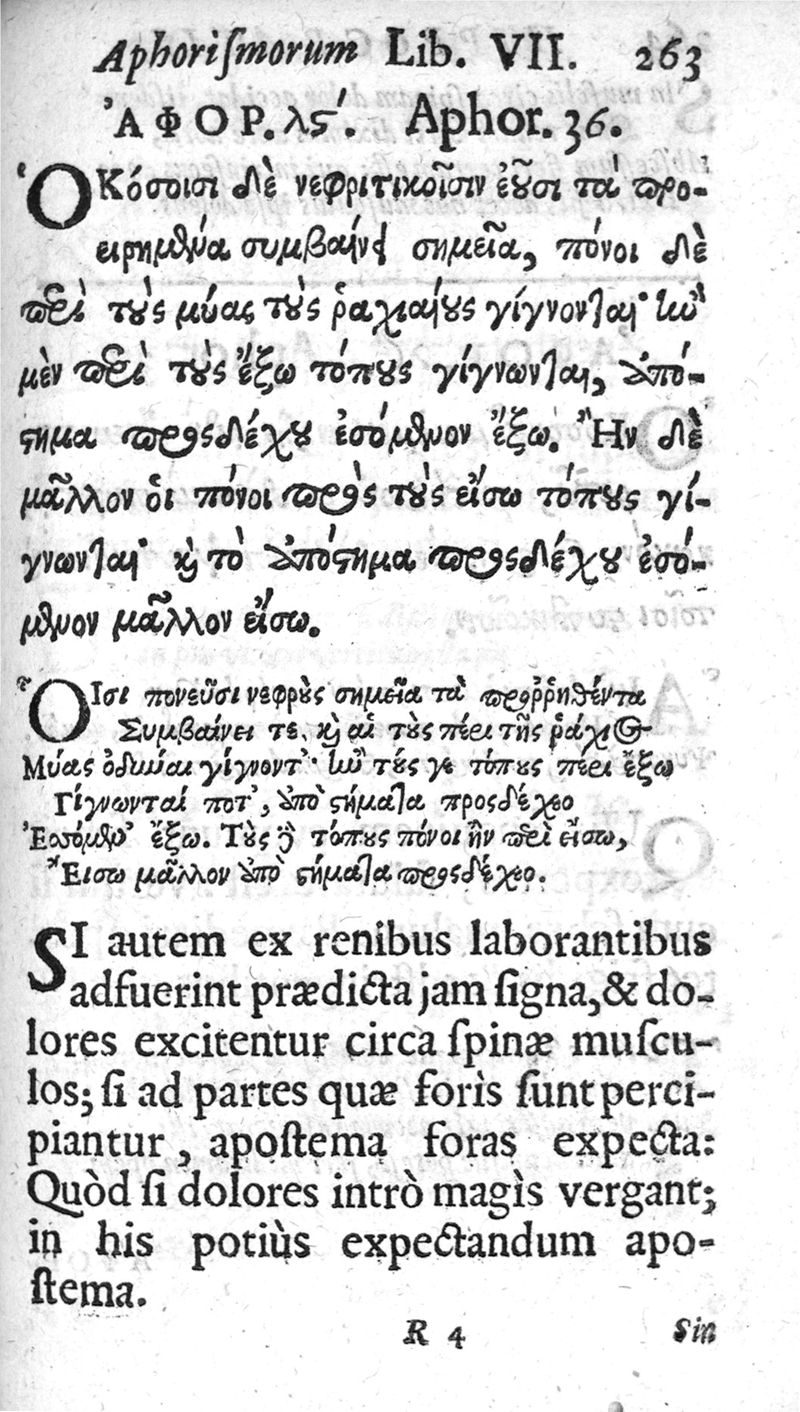 Aphoriſmorum Lib. VII. 263
ἈΦΟΡ. λϛʹ. Aphor. 36.
ὉΚόσοισι δὲ νεφριτικοῖσιν ἐȣ͂σι τὰ προ-
ειρημένα συμβαίνει σημεῖα, πόνοι δὲ
περὶ τȣ̀ς μύας τȣ̀ς ῥαχιαίȣς γίγνονται· κἢν
μὲν περὶ τȣ̀ς ἔξω τόπȣς γίγνωνται, ἀπό-
ϛημα προςδέχȣ ἐσόμενον ἔξω. Ἢν δὲ
μᾶλλον ὁι πόνοι πρὸς τȣ̀ς εἴσω τόπȣς γί-
γνωνται· ϗ τὸ ἀπόϛημα προςδέχȣ ἐσό-
μενον μᾶλλον εἴσω.
ὍΙσι πονεῦσι νεφρȣ̀ς σημεῖα τὰ προῤῥηθέντα
Συμβαίνει τε, ϗ αἱ τȣ̀ς πέρι τῆς ῥάχιος
Μύας ὀδύναι γίγνοντ᾽· κἢν τȣ́ς γε τόπȣς πέρι ἔξω
Γίγνωνταί ποτ᾽, ἀπὸ ϛήματα προςδέχεο
Ἐσόμεν᾽ ἔξω. Τȣ̀ς δὲ τόπȣς πόνοι ἢν περὶ εἴσω,
Ἔισω μᾶλλον ἀπὸ ϛήματα προςδέχεο.
SI autem ex renibus laborantibus
adfuerint prædicta jam ſigna, & do-
lores excitentur circa ſpinæ muſcu-
los; ſi ad partes quæ forìs ſunt perci-
piantur, apoſtema foras expecta:
Quòd ſi dolores intrò magìs vergant;
in his potiùs expectandum apo-
ſtema.
R 4 Sin